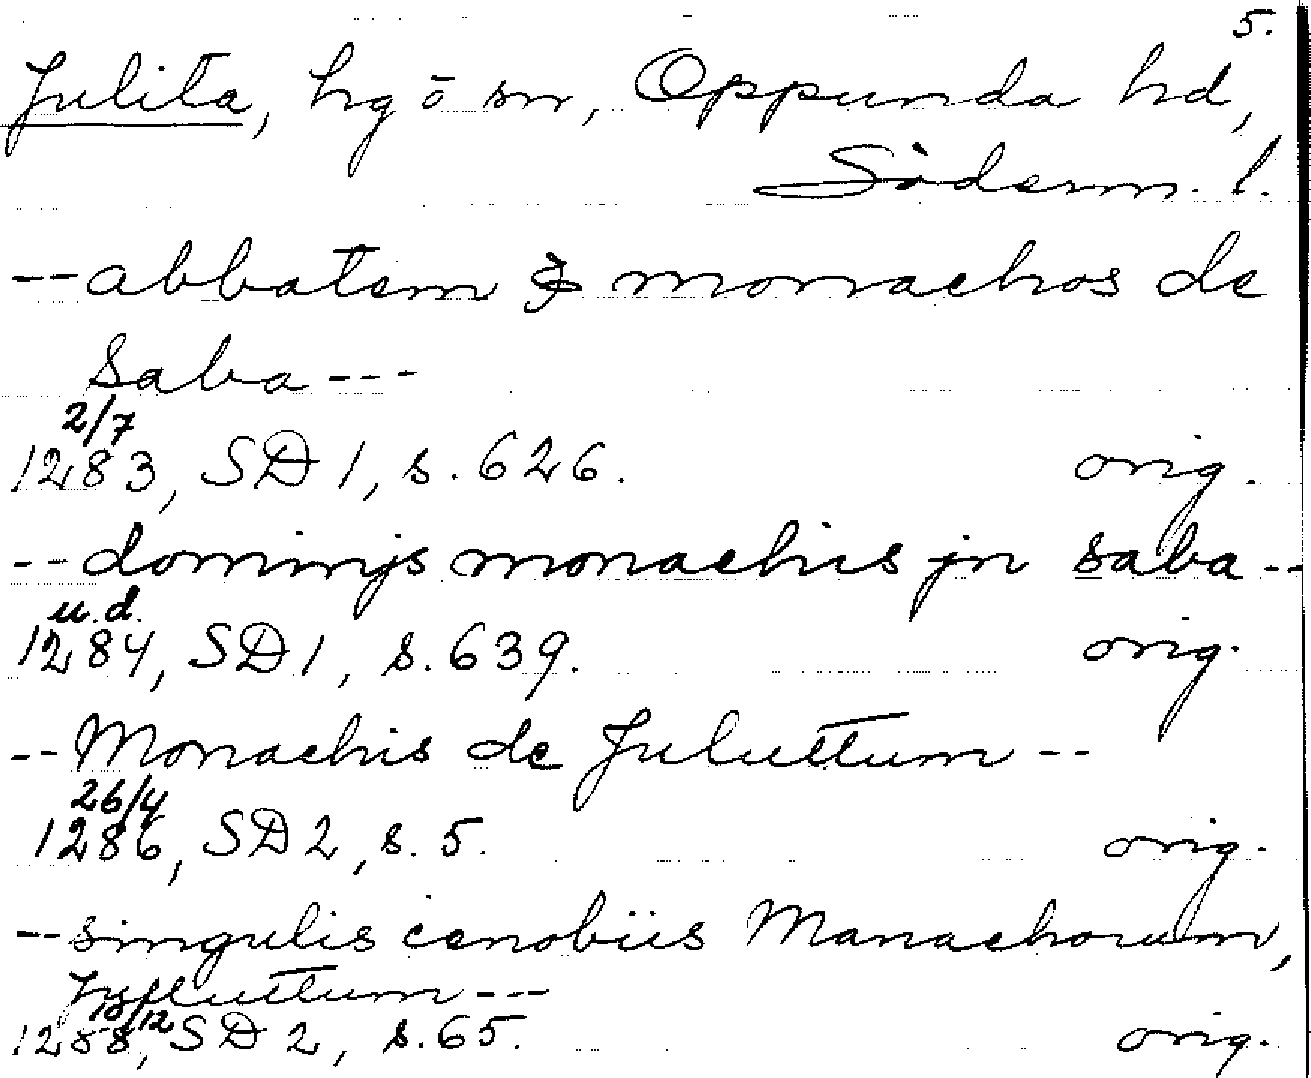 5.
Julita, hg ō sn, Oppunda hd,
Söderm. l.
-- abbatem & monachos de
Saba ---
2/7
1283, SD 1, s. 626. orig.
-- dominijs monachis jn saba --
u. d.
1284, SD 1, s. 639. orig.
-- Monachis de Juluttum --
26/4
1286, SD 2, s. 5. orig.
-- singulis cenobiis Manachorum,
Juluttum ---
/12
1288, SD 2, s. 65. orig.